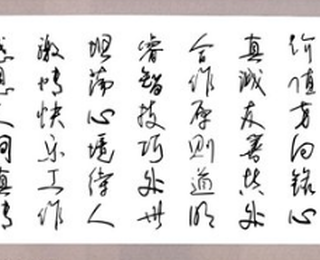 价值方向铭心
真诚友善共处
合作原则道明
睿智技巧处世
坦荡心境待人
激情快乐工作
感恩人间真情